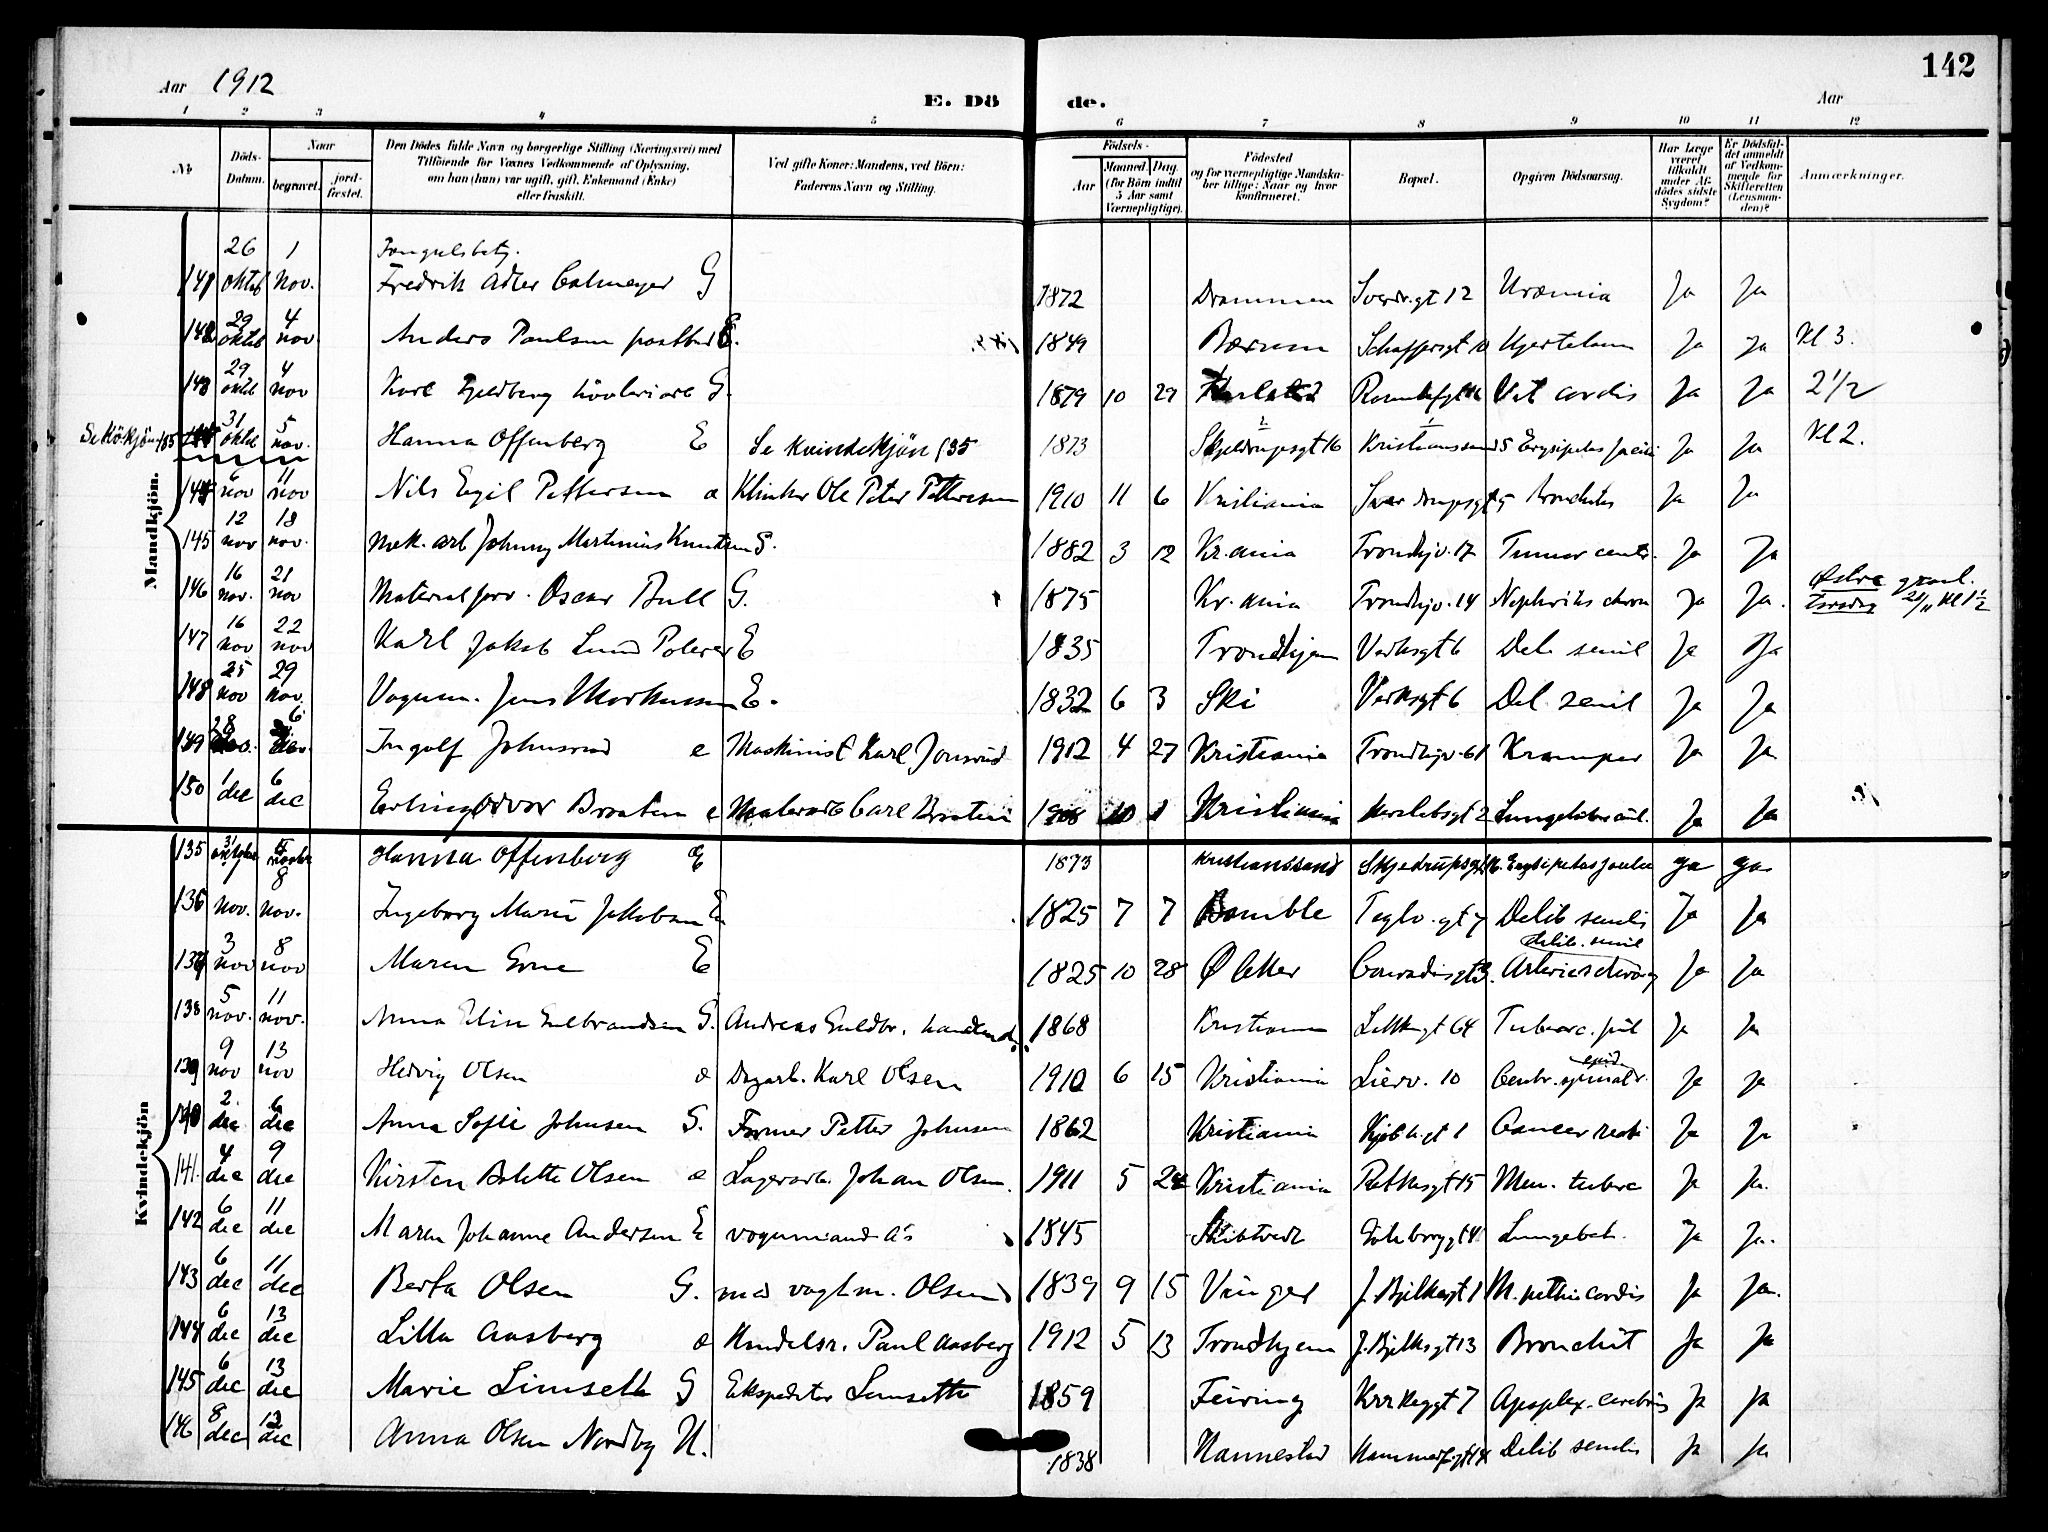 142
Aar 1912 E. Dö de. Aar
1 2 3 4 5 6 7 8 9 10 11 12
Nr. Döds-Datum. Naar begravet. jordfæstet. Den Dödes fulde Navn og borgerlige Stilling (Næringsvei) med Tilföiende for Voxnes Vedkommende af Oplysning, om han (hun) var ugift, gift, Enkemand (Enke) eller fraskilt. Ved gifte Koner: Mandens, ved Börn: Faderens Navn og Stilling. Födsels- Aar Maaned. Dag. (for Börn indtil 5 Aar samt Værnepligtige). Födested og for værnepligtige Mandskaber tillige: Naar og hvor konfirmeret. Bopæl. Opgiven Dödsaarsag. Har Læge været tilkaldt under Afdödes sidste Sygdom? Er Dödsfaldet anmeldt af Vedkommende for Skifteretten (Lensmanden)? Anmærkninger.
Mandkjön.
26 1
141 oktob nov. Fredrik Adler Calmeyer G 1872 Drammen Sverdr.gt 12 Uræmia Ja Ja
29 4
142 oktob nov Anders Paulsen E. 1849 Bærum 10 Ja Ja Kl 3.
29 4
143 oktob nov Karl G. 1879 10 29 Vit cordis Ja Ja 2 1/2
31 5
oktob nov. Hanna Offenberg E Se kvindekjön 135 1873 Skjeldrupsgt 16 Kristianssand Erysipelas faciei Ja Ja Kl 2.
6 11
144 nov nov Nils Egil Pettersen e Klinker Ole Peter Pettersen 1910 11 6 Kristiania 5 Bronchitis Ja Ja
12 18
145 nov nov. mek. arb Johnny Martinius Knutsen G. 1882 3 12 Kr.ania Trondhjv. 17 Tumor Ja Ja
16 21
146 nov. nov Materialforv. Oscar Bull G. 1875 Kr.ania Trondhjv. 14 Nephritis chron Ja Ja. Østre gravl. Torsdag 21/11 Kl 1 1/2
16 22
147 nov nov Karl Jakob Lund Polerer E 1835 Trondhjem Verksgt 6 Deb. senil Ja Ja
25 29
148 nov nov. Vognm. Jens Markussen E. 1832 6 3 Ski Verksgt 6 Deb. senil Ja Ja
28 6
149 Ingolf Johnsrud e Maskinist Karl Jonsrud 1912 4 27 Kristiania Trondhjv. 61 Kramper Ja Ja
1 6
150 dec dec Erling Braaten e Carl Braaten 1 Kristiania Herslebsgt 2 Ja Ja
Kvindekjön
135 31 oktober 5 Hanna Offenberg E 1873 Kristianssand Skjeldrupsgt 16. Erysipelas faciei Ja Ja
8
136 nov. nov. Ingeborg Marie Jakobsen E 1825 7 7 Bamble Teglv.gt 7 Debil senilis Ja Ja
3 8 debil. senil
137 nov nov Maren E 1825 10 28 Ø Aker Conradisgt 3. Ja Ja
5 11
138 nov. nov. Anna Elise Gulbrandsen G. Andreas Guldbr. 1868 Kristiania 64 Tuberc. pul Ja Ja
9 13
139 nov nov Hedvig Olsen e Dagarb. Karl Olsen 1910 6 15 Kristiania Lierv. 10 Ja Ja
2. 6
140 dec dec Anna Sofie Johnsen G. Former Petter Johnsen 1862 Kristiania Cancer recti Ja Ja
4 9
141. dec dec Kirsten Bolette Olsen e Lagerarb. Johan Olsen. 1911 5 24 Kristiania Ratkesgt 15 Men. tuberc Ja Ja.
6 11
142 dec dec Maren Johanne Andersen E vognmand A's 1845 Skibtvedt Lungebet. Ja Ja.
6 11
143 dec dec Berta Olsen G. med vagtm. Olsen 1839 9 15 Vinger J. Bjelkesgt 1 Ja Ja.
6 13
144 dec dec Lilla Aasberg e Handelsr. Paul Aasberg 1912 5 13 Trondhjem J. Bjelksgt 13 Bronchit Ja Ja
6 13
145 dec dec Marie Limseth G Ekspeditør Limseth 1859 Feiring 7 Apoplex. cerebri Ja Ja
8 13
146 dec dec Anna Olsen Nordby U. 1838 Vannestad Debil senilis Ja Ja